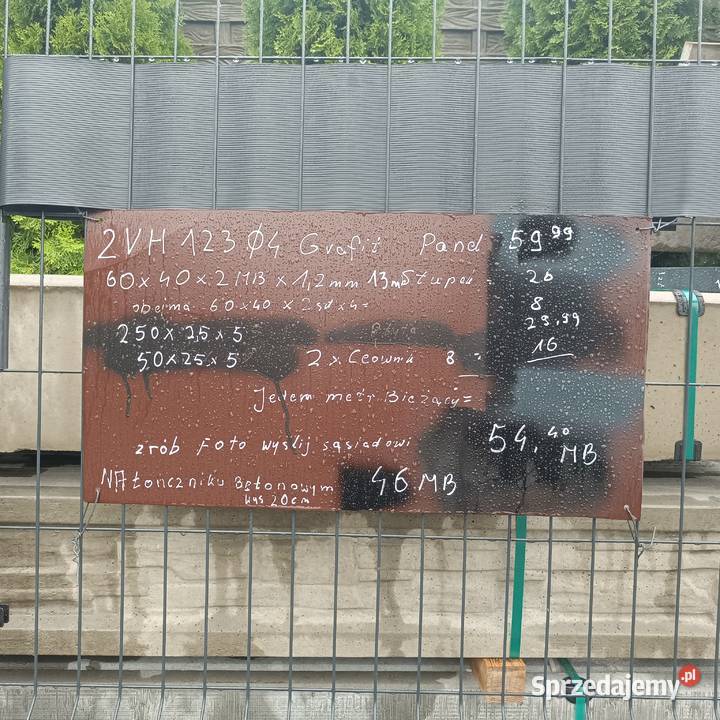 2VH 123 Ø4 Grafit Panel 59⁹⁹
60x40x2MBx1,2mm 13mb Słupek - 26
obejma 60x40x2szt x4= 8
250x2,5x5 Płyta 29,99
50x25x5 2x Ceownik 8 = 16
Jeden metr Bieżący=
zrób Foto wyślij sąsiadowi 54,⁴⁰ MB
NA łączniku Betonowym 46 MB
wys 20cm
Sprzedajemy.pl